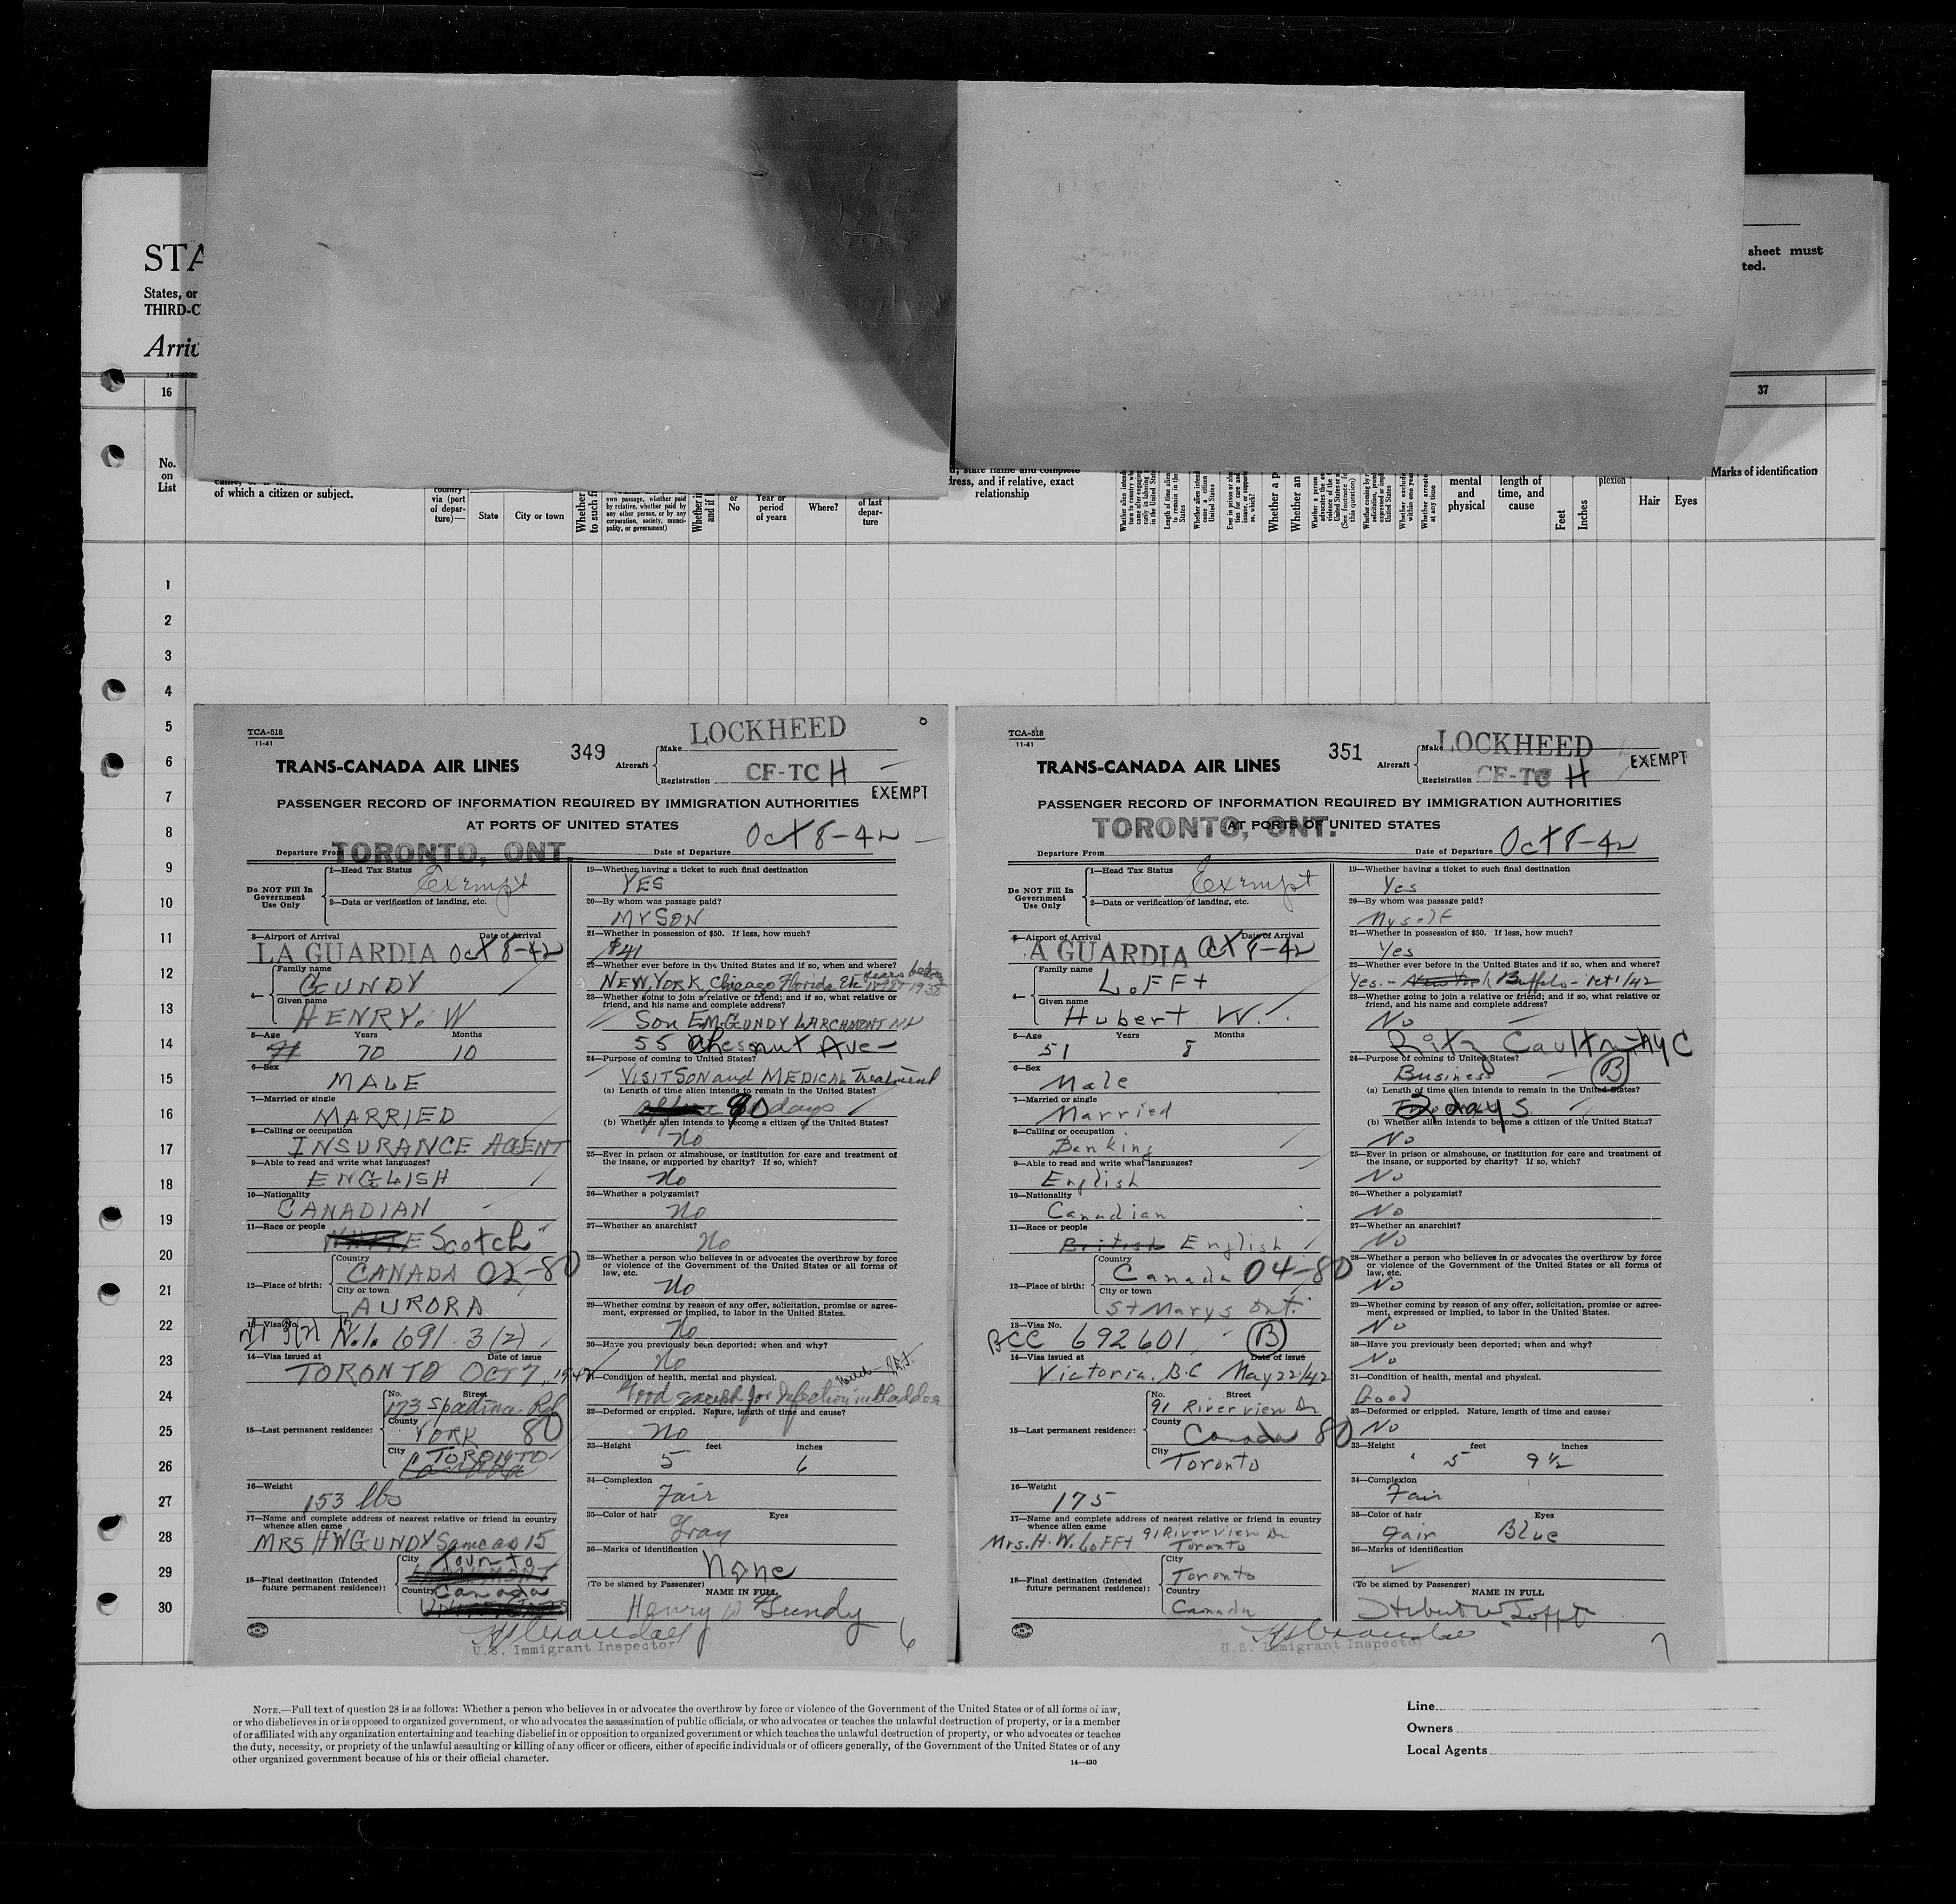 STA
States, or
THIRD-C
Arriv
sheet must
ted.
16
37
No.
on
List
of which a citizen or subject.
country
via (port
of depar-
ture)—
State
City or town
own passage, whether paid
by relative, whether paid by
any other person, or by any
corporation, society, munici-
pality, or government)
or
No
Year or
period
of years
Where?
of last
depar-
ture
state name and complete
dress, and if relative, exact
relationship
mental
and
physical
length of
time, and
cause
Feet
Inches
plexion
Hair
Eyes
Marks of identification
1
2
3
4
5
6
7
8
9
10
11
12
13
14
15
16
17
18
19
20
21
22
23
24
25
26
27
28
29
30
TCA-518
11-41
349
LOCKHEED
TRANS-CANADA AIR LINES
Aircraft
Make
Registration CF-TC H
EXEMPT
PASSENGER RECORD OF INFORMATION REQUIRED BY IMMIGRATION AUTHORITIES
AT PORTS OF UNITED STATES
Departure From TORONTO, ONT.
Date of Departure Oct 8-42
Do NOT Fill In
Government
Use Only
1—Head Tax Status Exempt
2—Data or verification of landing, etc.
3—Airport of Arrival Date of Arrival
LA GUARDIA Oct 8-42
4—
Family name
GUNDY
Given name
HENRY. W
5—Age Years Months
71 70 10
6—Sex
MALE
7—Married or single
MARRIED
8—Calling or occupation
INSURANCE AGENT
9—Able to read and write what languages?
ENGLISH
10—Nationality
CANADIAN
11—Race or people
WHITE Scotch
12—Place of birth:
Country
CANADA 02-80
City or town
AURORA
13—Visa No.
N.I. 691 3(2)
14—Visa issued at Date of issue
TORONTO OCT 7, 1942
15—Last permanent residence:
No. Street
173 Spadina Rd
County
YORK 80
City
TORONTO
Canada
16—Weight
153 lbs
17—Name and complete address of nearest relative or friend in country
whence alien came
MRS HW GUNDY Same as 15
18—Final destination (Intended
future permanent residence):
City
Toronto
Country
Canada
19—Whether having a ticket to such final destination
YES
20—By whom was passage paid?
MY SON
21—Whether in possession of $50. If less, how much?
$41
22—Whether ever before in the United States and if so, when and where?
NEW YORK, Chicago Florida Etc
23—Whether going to join a relative or friend; and if so, what relative or
friend, and his name and complete address?
Son E.M. GUNDY LARCHMONT NY
55 Chesnut Ave—
24—Purpose of coming to United States?
VISIT SON and MEDICAL Treatment
(a) Length of time alien intends to remain in the United States?
90 days
(b) Whether alien intends to become a citizen of the United States?
No
25—Ever in prison or almshouse, or institution for care and treatment of
the insane, or supported by charity? If so, which?
No
26—Whether a polygamist?
No
27—Whether an anarchist?
No
28—Whether a person who believes in or advocates the overthrow by force
or violence of the Government of the United States or all forms of
law, etc.
No
29—Whether coming by reason of any offer, solicitation, promise or agree-
ment, expressed or implied, to labor in the United States.
No
30—Have you previously been deported; when and why?
No
31—Condition of health, mental and physical.
Good except for Infection in bladder
32—Deformed or crippled. Nature, length of time and cause?
No
33—Height feet inches
5 6
34—Complexion
Fair
35—Color of hair Eyes
Gray
36—Marks of identification
None
(To be signed by Passenger) NAME IN FULL
Henry W Gundy
U.S. Immigrant Inspector
6
TCA-518
11-41
351
LOCKHEED
TRANS-CANADA AIR LINES
Aircraft
Make
Registration CF-TC H
EXEMPT
PASSENGER RECORD OF INFORMATION REQUIRED BY IMMIGRATION AUTHORITIES
AT PORTS OF UNITED STATES
TORONTO, ONT.
Departure From
Date of Departure Oct 8-42
Do NOT Fill In
Government
Use Only
1—Head Tax Status Exempt
2—Data or verification of landing, etc.
3—Airport of Arrival Date of Arrival
A GUARDIA Oct 8-42
4—
Family name
Lofft
Given name
Hubert W.
5—Age Years Months
51 8
6—Sex
Male
7—Married or single
Married
8—Calling or occupation
Banking
9—Able to read and write what languages?
English
10—Nationality
Canadian
11—Race or people
British English
12—Place of birth:
Country
Canada 04-80
City or town
St Marys Ont.
13—Visa No.
BCC 692601 B
14—Visa issued at Date of issue
Victoria, B.C May 22/42
15—Last permanent residence:
No. Street
91 Riverview Dr
County
Canada 80
City
Toronto
16—Weight
175
17—Name and complete address of nearest relative or friend in country
whence alien came
Mrs. H. W. Lofft 91 Riverview Dr
Toronto
18—Final destination (Intended
future permanent residence):
City
Toronto
Country
Canada
19—Whether having a ticket to such final destination
Yes
20—By whom was passage paid?
Myself
21—Whether in possession of $50. If less, how much?
Yes
22—Whether ever before in the United States and if so, when and where?
Yes. - New York Buffalo - Oct 1/42
23—Whether going to join a relative or friend; and if so, what relative or
friend, and his name and complete address?
No
Ritz Caultn NYC
24—Purpose of coming to United States?
Business B
(a) Length of time alien intends to remain in the United States?
2 days
(b) Whether alien intends to become a citizen of the United States?
No
25—Ever in prison or almshouse, or institution for care and treatment of
the insane, or supported by charity? If so, which?
No
26—Whether a polygamist?
No
27—Whether an anarchist?
No
28—Whether a person who believes in or advocates the overthrow by force
or violence of the Government of the United States or all forms of
law, etc.
No
29—Whether coming by reason of any offer, solicitation, promise or agree-
ment, expressed or implied, to labor in the United States.
No
30—Have you previously been deported; when and why?
No
31—Condition of health, mental and physical.
Good
32—Deformed or crippled. Nature, length of time and cause?
No
33—Height feet inches
5 9½
34—Complexion
Fair
35—Color of hair Eyes
Fair Blue
36—Marks of identification
(To be signed by Passenger) NAME IN FULL
Hubert W Lofft
U.S. Immigrant Inspector
7
NOTE.—Full text of question 28 is as follows: Whether a person who believes in or advocates the overthrow by force or violence of the Government of the United States or of all forms of law,
or who disbelieves in or is opposed to organized government, or who advocates the assassination of public officials, or who advocates or teaches the unlawful destruction of property, or is a member
of or affiliated with any organization entertaining and teaching disbelief in or opposition to organized government or which teaches the unlawful destruction of property, or who advocates or teaches
the duty, necessity, or propriety of the unlawful assaulting or killing of any officer or officers, either of specific individuals or of officers generally, of the Government of the United States or of any
other organized government because of his or their official character.
14—430
Line
Owners
Local Agents